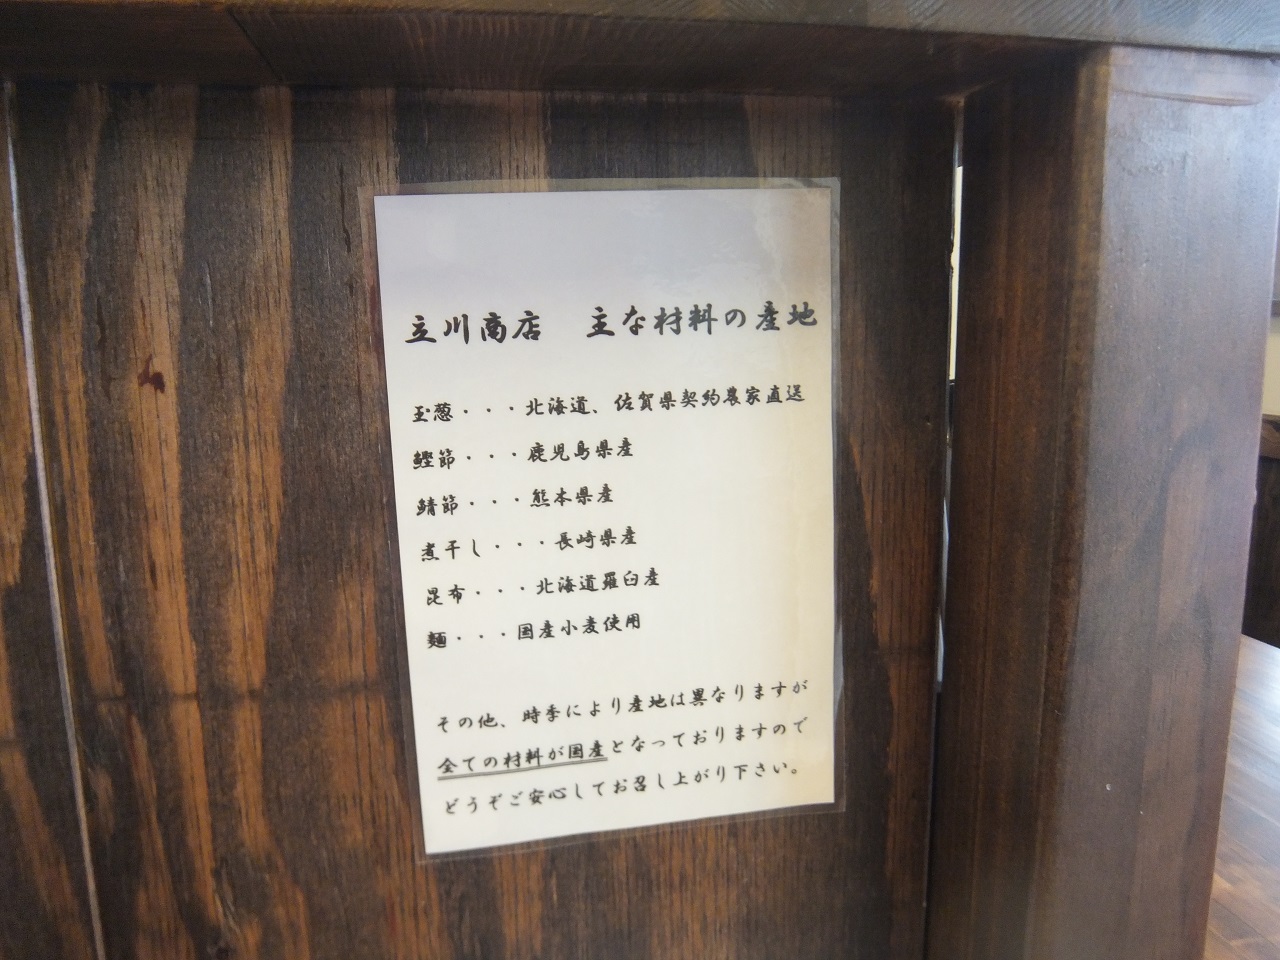 立川商店　主な材料の産地
玉葱・・・北海道、佐賀県契約農家直送
鰹節・・・鹿児島県産
鯖節・・・熊本県産
煮干し・・・長崎県産
昆布・・・北海道羅臼産
麺・・・国産小麦使用
その他、時季により産地は異なりますが
全ての材料が国産となっておりますので
どうぞご安心してお召し上がり下さい。